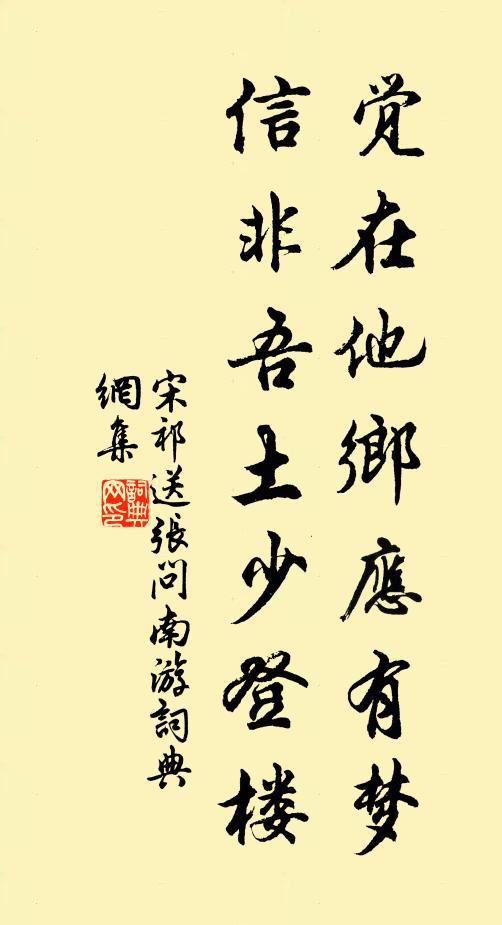 觉在他鄉應有梦
信非吾土少登楼
宋祁送張问南游詞典
網集
詞典
网印